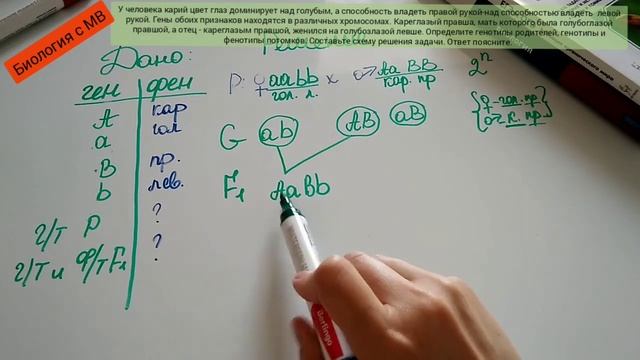 У человека карий цвет глаз доминирует над голубым, а способность владеть правой рукой-над способностью владеть левой
рукой. Гены обоих признаков находятся в различных хромосомах. Кареглазый правша, мать которого была голубоглазой
правшой, а отец - кареглазым правшой, женился на голубоглазой левше. Определите генотипы родителей, генотипы и
фенотипы потомков. Составьте схему решения задачи. Ответ поясните.
Биология с МВ
Дано:
ген фен
A кар
a гол
B пр.
b лев.
г/т P ?
г/т и ф/т F₁ ?
P: ♀ aabb x ♂ AaBB
гол. л. кар. пр
2ⁿ
♀ - гол. пр.
♂ к. пр.
G ab AB aB
F₁ AaBb
Berlingo